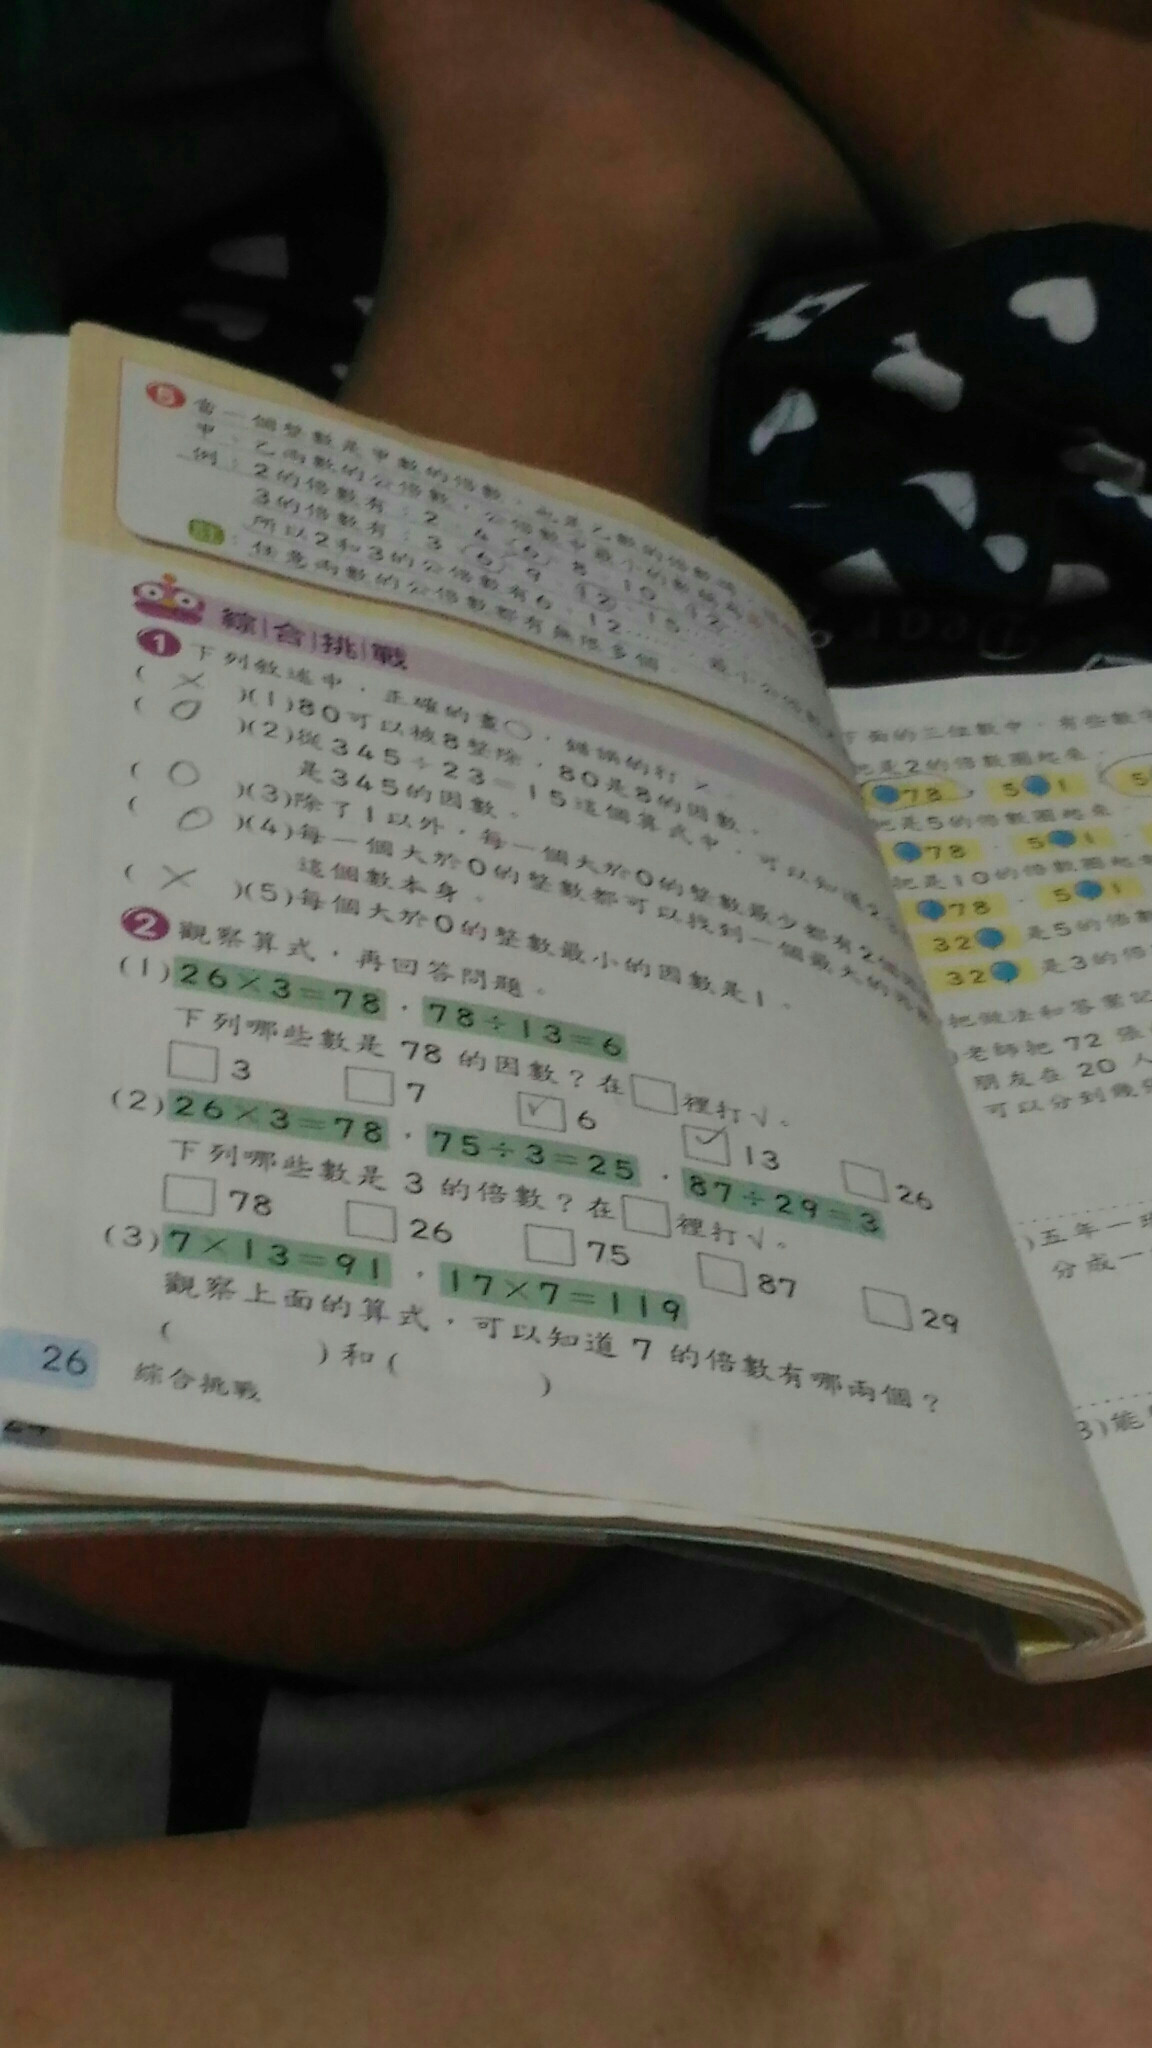 5 當一個整數是甲數的倍數，也是乙數的倍數時，
甲、乙兩數的公倍數，公倍數中最小的數稱為
例：2的倍數有：2、4、6、8、10、12……
3的倍數有：3、6、9、12、15……
所以2和3的公倍數有6、12……，最小公倍數
註：任意兩數的公倍數都有無限多個。
綜合挑戰
1 下列敘述中，正確的畫○，錯誤的打×。
( × )(1)80可以被8整除，80是8的因數。
( ○ )(2)從345÷23=15這個算式中，可以知道23
是345的因數。
( ○ )(3)除了1以外，每一個大於0的整數最少都有2個
( ○ )(4)每一個大於0的整數都可以找到一個最大的因數
這個數本身。
( × )(5)每個大於0的整數最小的因數是1。
2 觀察算式，再回答問題。
(1) 26×3=78，78÷13=6
下列哪些數是 78 的因數？在□裡打√。
□ 3 □ 7 ☑ 6 ☑ 13 □ 26
(2) 26×3=78，75÷3=25，87÷29=3
下列哪些數是 3 的倍數？在□裡打√。
□ 78 □ 26 □ 75 □ 87 □ 29
(3) 7×13=91，17×7=119
觀察上面的算式，可以知道 7 的倍數有哪兩個？
( )和( )
26 綜合挑戰
下面的三位數中，有些數字
把是2的倍數圈起來。
78 5 1 5
把是5的倍數圈起來
78 5 1
把是10的倍數圈起來
78 5 1
32 是5的倍數
32 是3的倍
把做法和答案記
老師把 72 張
朋友在 20 人
可以分到幾張
五年一班
分成一
3)能